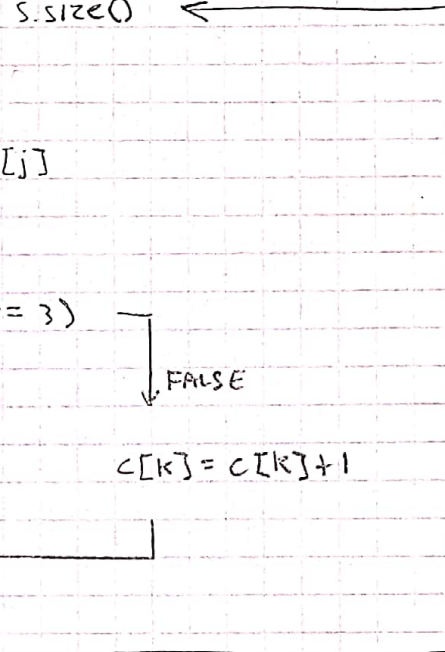 s.size()
[j]
= 3)
FALSE
c[k] = c[k]+1